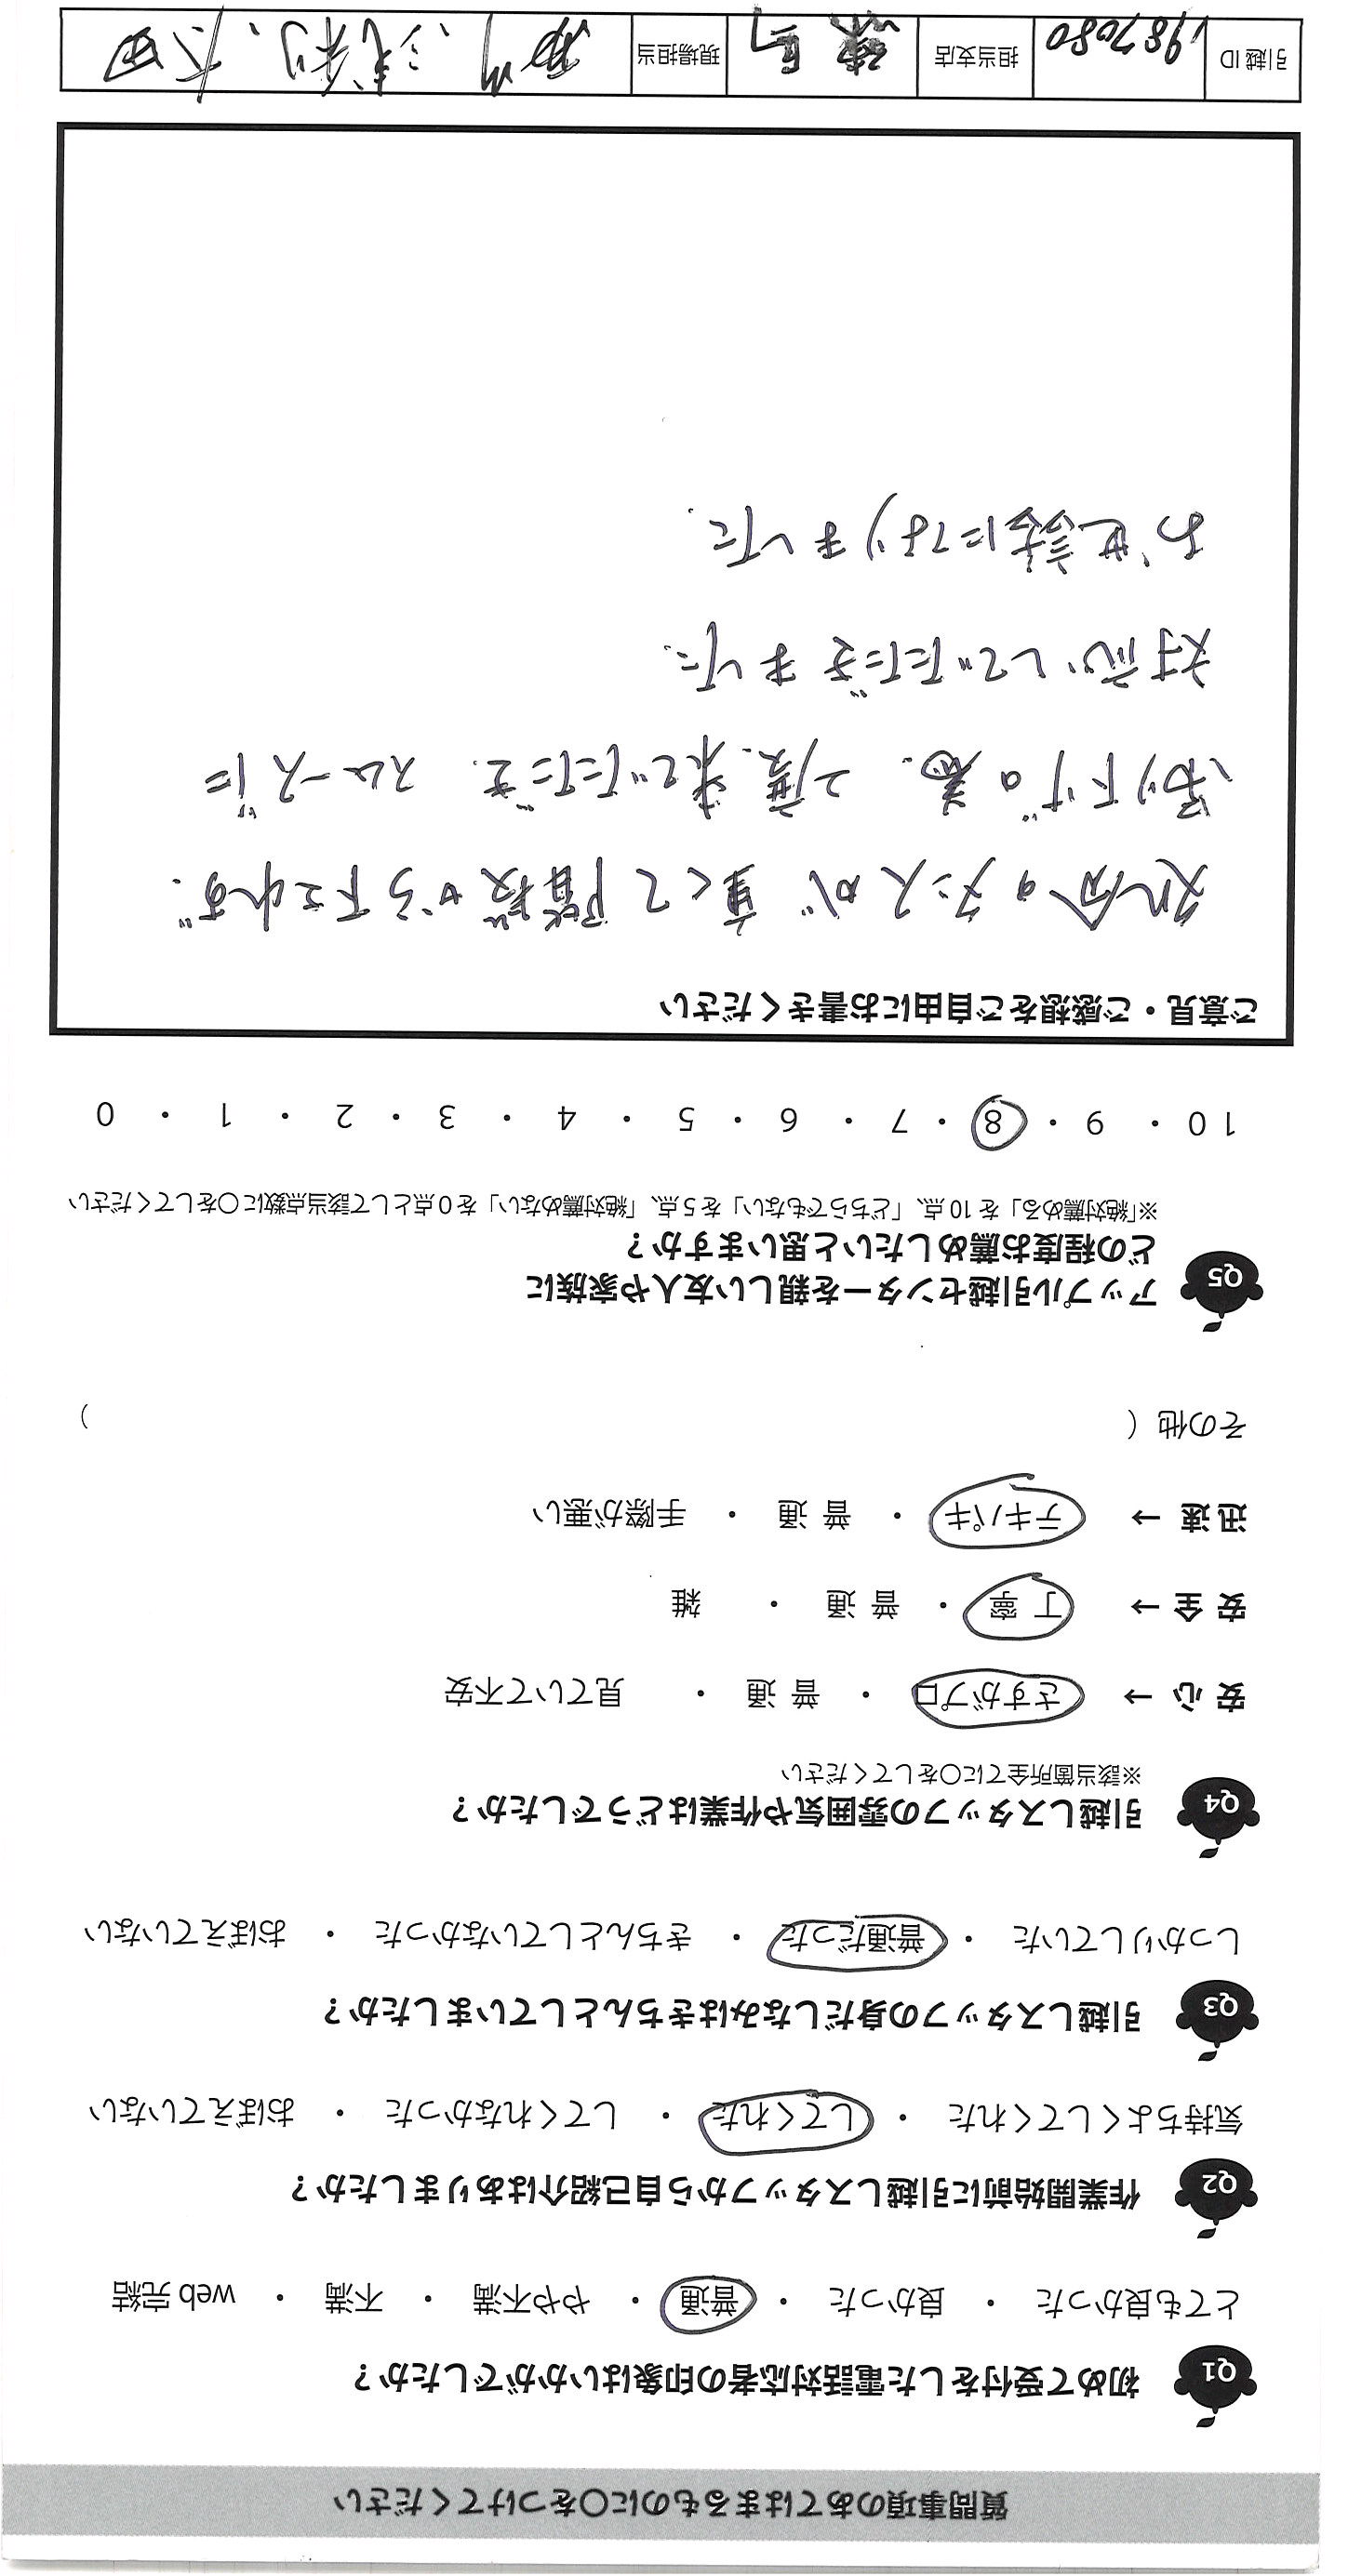 質問事項のあてはまるものに○をつけてください
Q1 初めて受付をした電話対応者の印象はいかがでしたか？
とても良かった ・ 良かった ・ 普通 ・ やや不満 ・ 不満 ・ web 完結
Q2 作業開始前に引越しスタッフから自己紹介はありましたか？
気持ちよくしてくれた ・ してくれた ・ してくれなかった ・ おぼえていない
Q3 引越しスタッフの身だしなみはきちんとしていましたか？
しっかりしていた ・ 普通だった ・ きちんとしていなかった ・ おぼえていない
Q4 引越しスタッフの雰囲気や作業はどうでしたか？
※該当箇所全てに○をしてください
安 心 → さすがプロ ・ 普 通 ・ 見ていて不安
安 全 → 丁 寧 ・ 普 通 ・ 雑
迅 速 → テキパキ ・ 普 通 ・ 手際が悪い
その他（ ）
Q5 アップル引越センターを親しい友人や家族に
どの程度お薦めしたいと思いますか？
※「絶対薦める」を 10 点、「どちらでもない」を 5 点、「絶対薦めない」を 0 点として該当点数に○をしてください
10 ・ 9 ・ 8 ・ 7 ・ 6 ・ 5 ・ 4 ・ 3 ・ 2 ・ 1 ・ 0
ご意見・ご感想をご自由にお書きください
処分のタンスが 重くて階段から下ろせず.
吊り下げの為. 2度.来ていただき. スムーズに
対応していただきました.
お世話になりました.
引越 ID 1987080 担当支店 練馬 現場担当